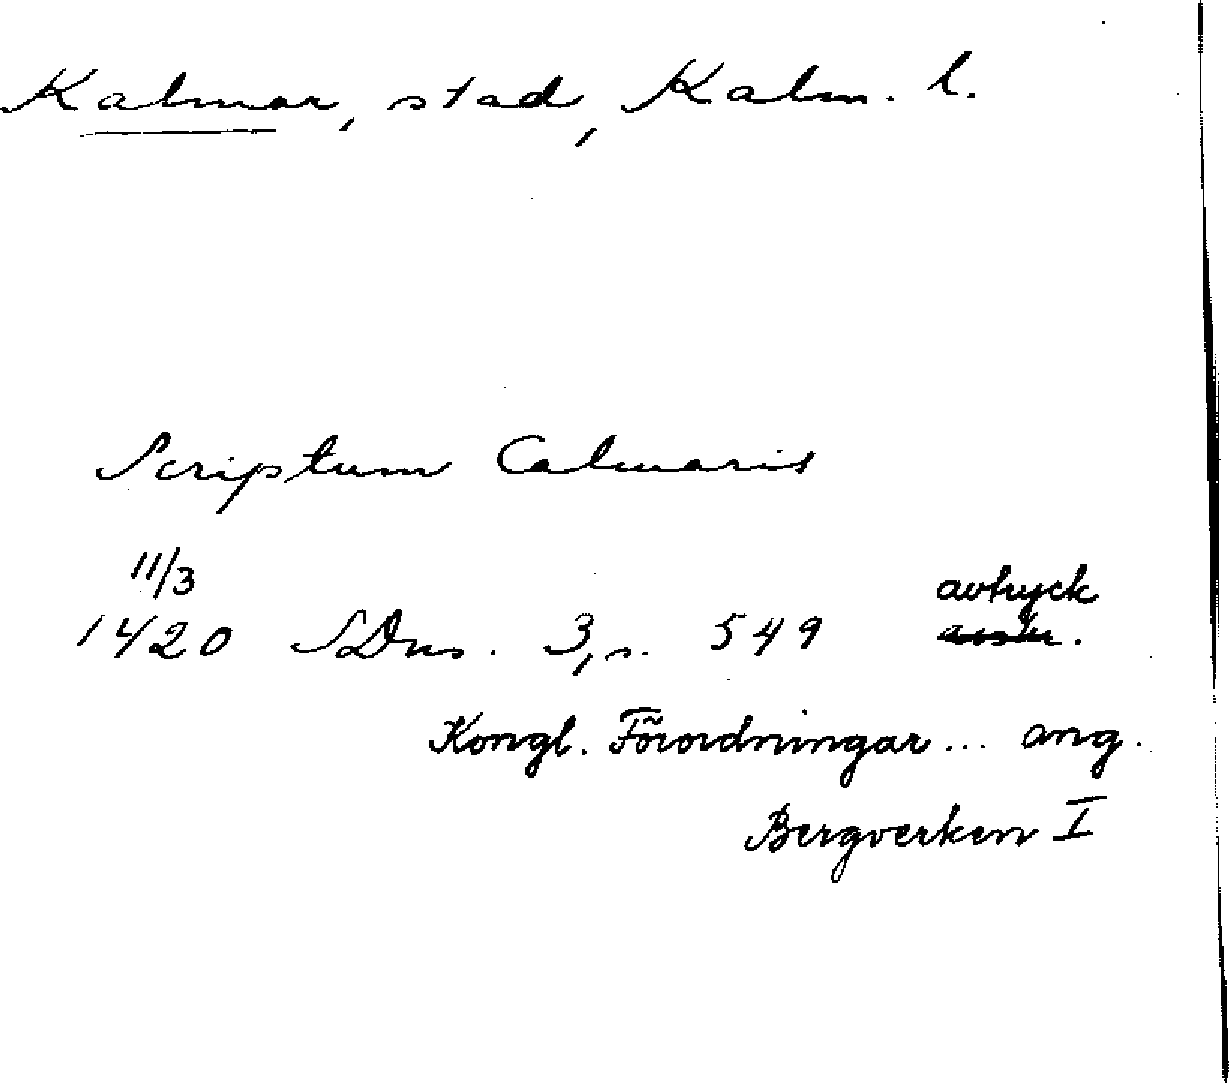 Kalmar, stad, Kalm. l.
Scriptum Calmaris
11/3 avtryck
1420 SDns. 3, s. 549
Kongl. Förordningar... ang.
Bergverken I